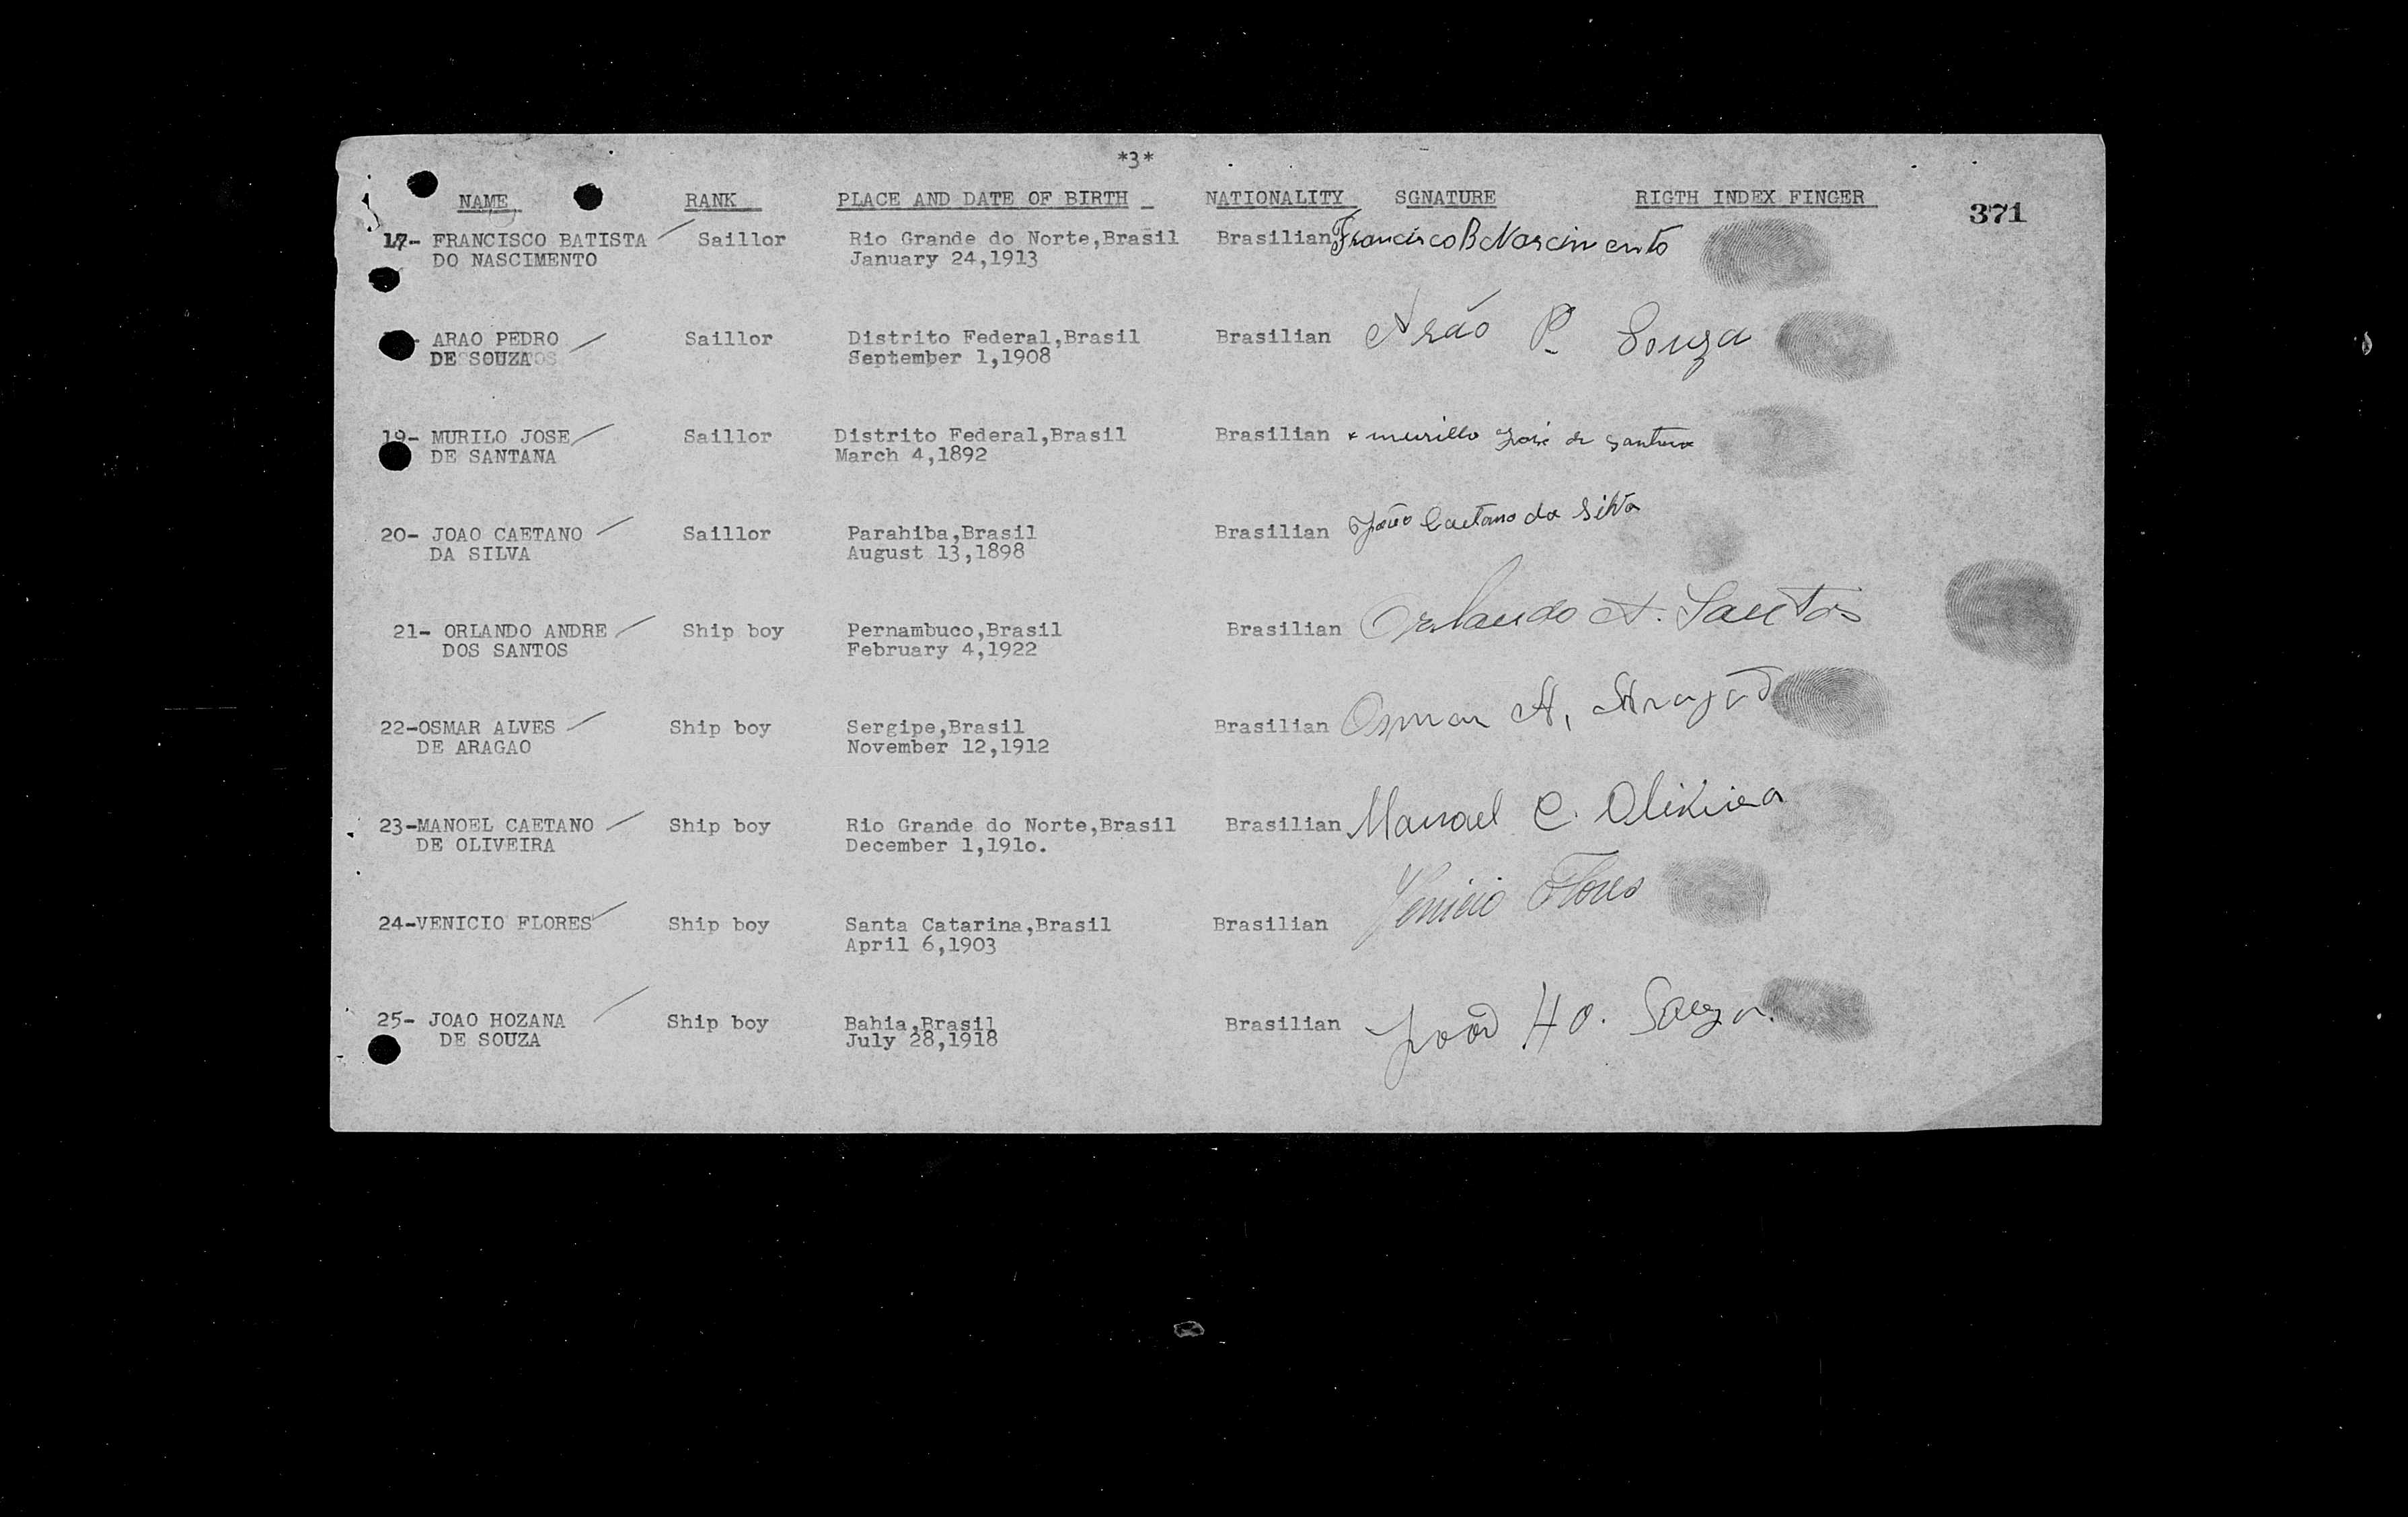 *3*
NAME RANK PLACE AND DATE OF BIRTH NATIONALITY SGNATURE RIGTH INDEX FINGER
371
17- FRANCISCO BATISTA Saillor Rio Grande do Norte,Brasil Brasilian Francisco B Nascimento
DO NASCIMENTO January 24,1913
ARAO PEDRO Saillor Distrito Federal,Brasil Brasilian Arão P. Souza
DE SOUZA September 1,1908
19- MURILO JOSE Saillor Distrito Federal,Brasil Brasilian x murillo José de Santana
DE SANTANA March 4,1892
20- JOAO CAETANO Saillor Parahiba,Brasil Brasilian João Caetano da Silva
DA SILVA August 13,1898
21- ORLANDO ANDRE Ship boy Pernambuco,Brasil Brasilian Orlando A. Santos
DOS SANTOS February 4,1922
22-OSMAR ALVES Ship boy Sergipe,Brasil Brasilian Osmar A, Aragão
DE ARAGAO November 12,1912
23-MANOEL CAETANO Ship boy Rio Grande do Norte,Brasil Brasilian Manoel C. Oliveira
DE OLIVEIRA December 1,191o.
24-VENICIO FLORES Ship boy Santa Catarina,Brasil Brasilian Venicio Flores
April 6,1903
25- JOAO HOZANA Ship boy Bahia,Brasil Brasilian João HO. Souza.
DE SOUZA July 28,1918